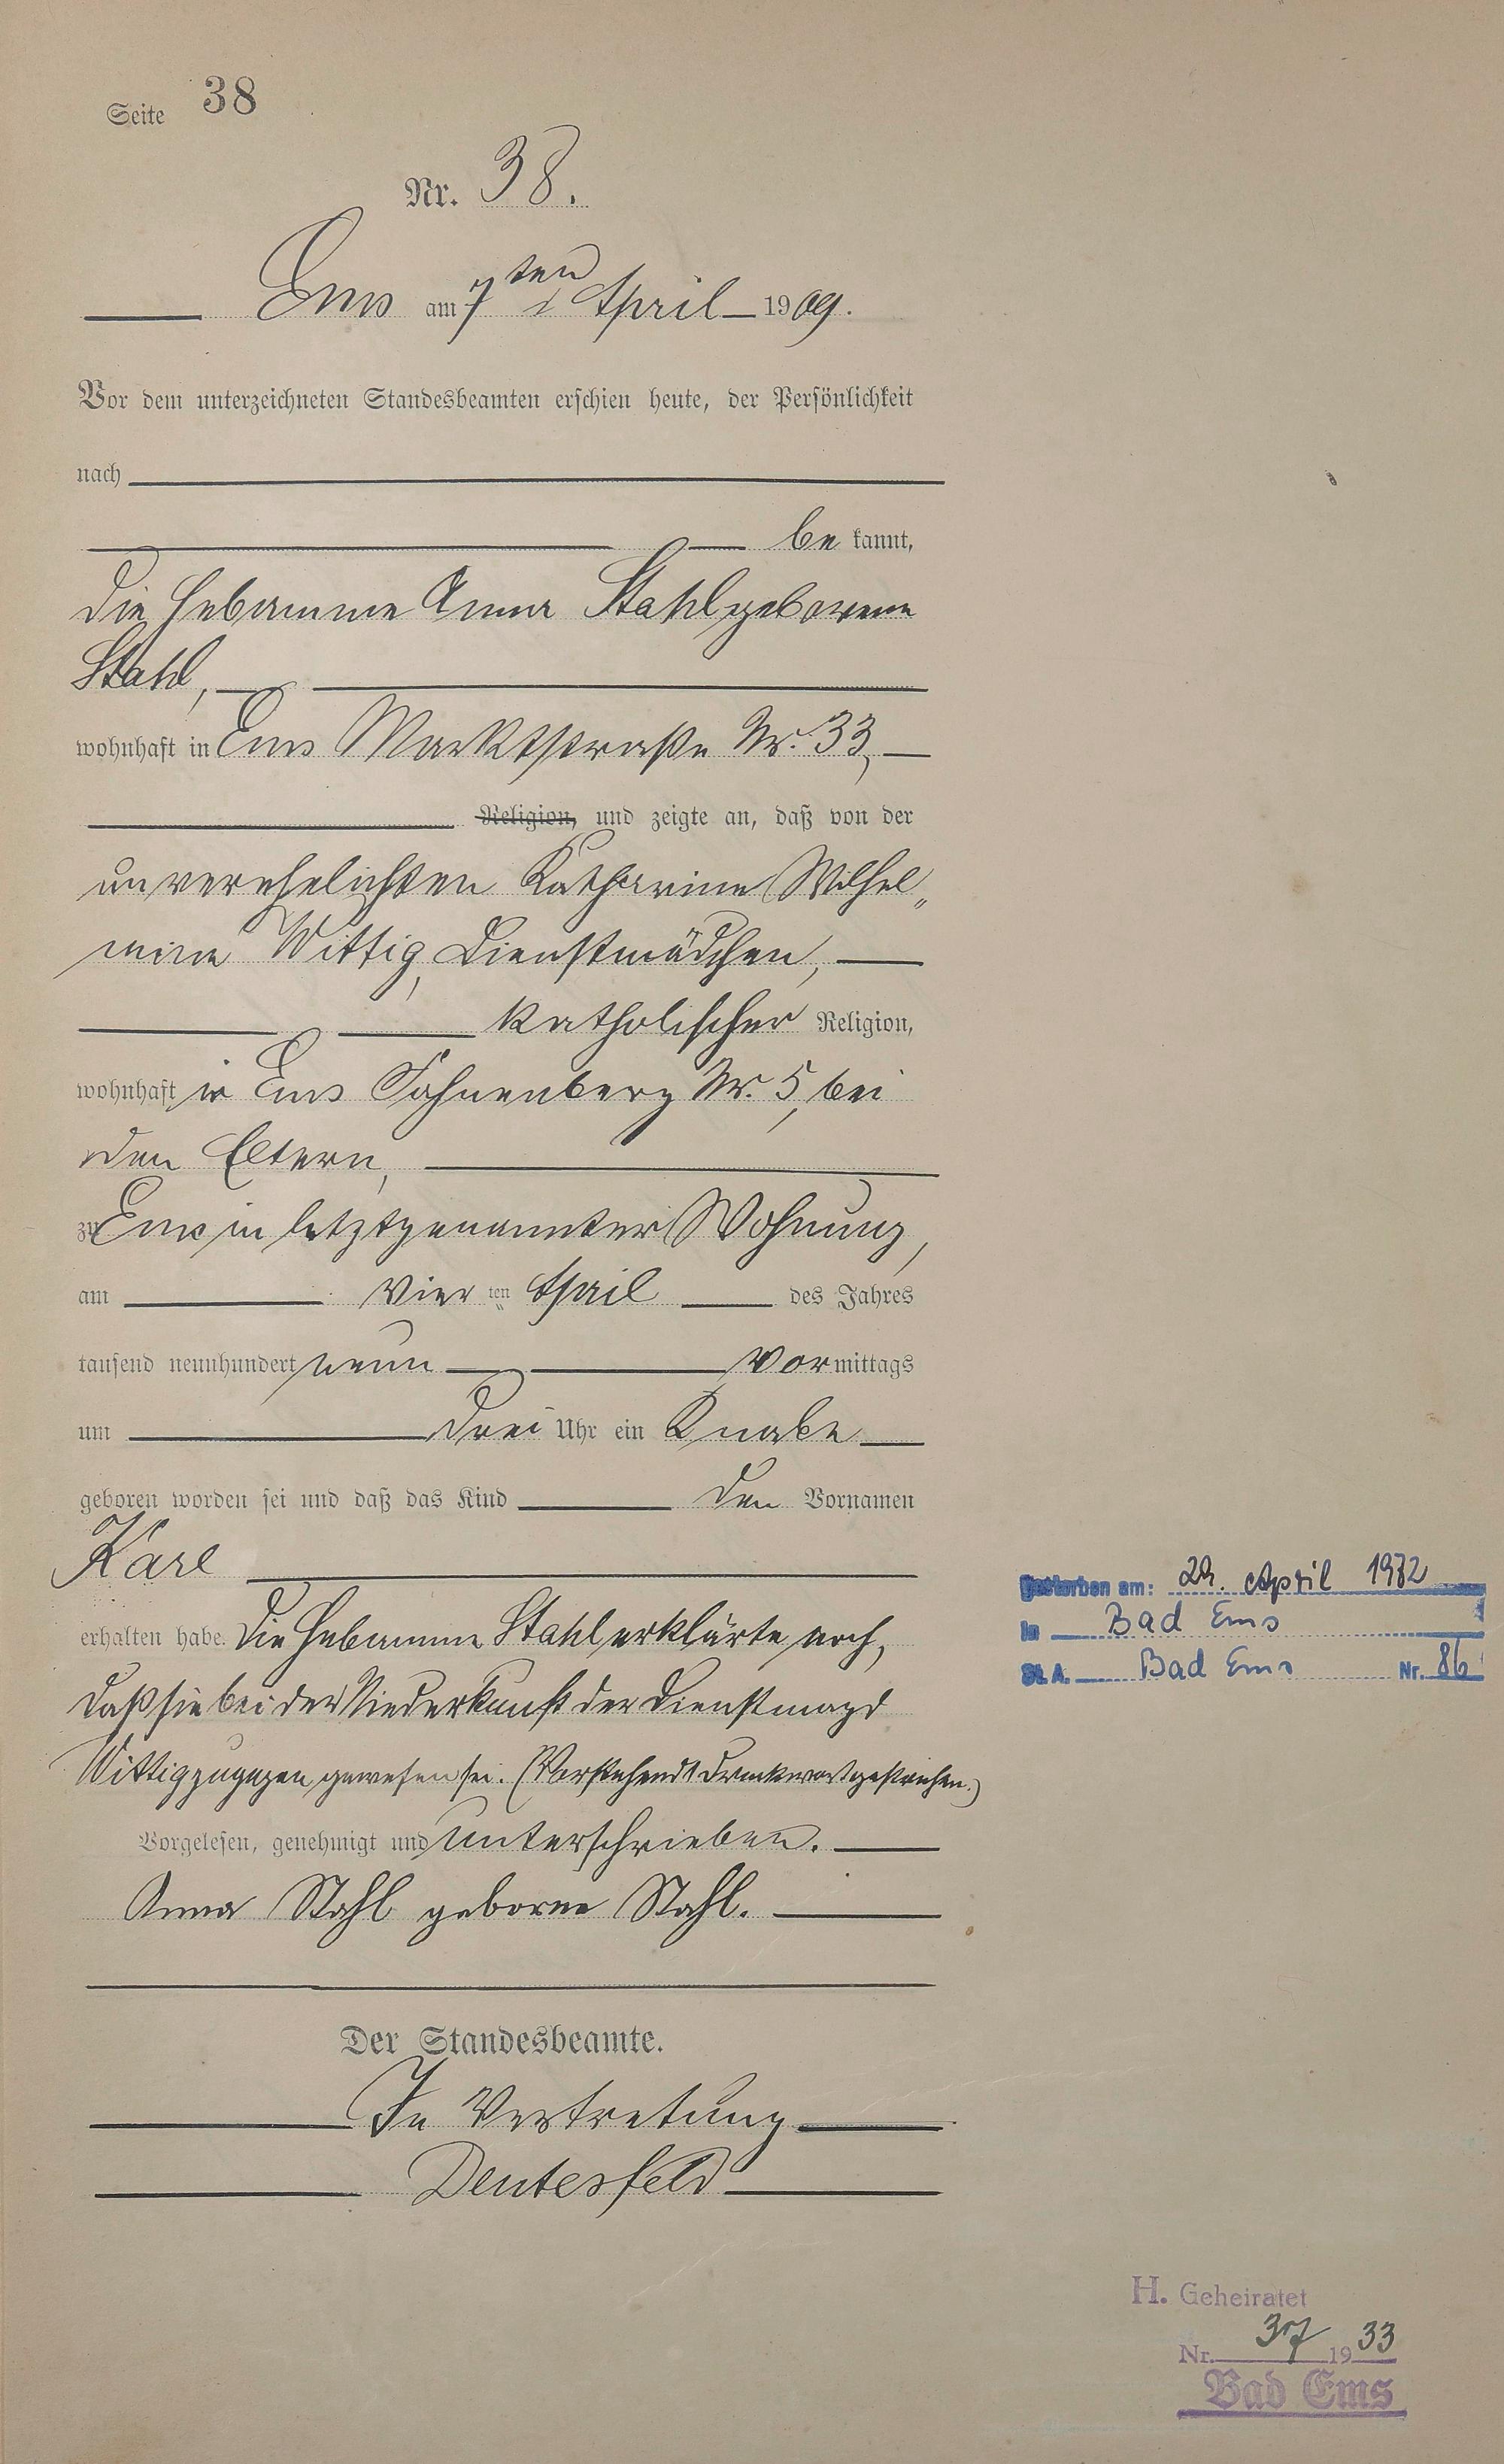 Seite 38
Nr. 38.
Ems am 7ten April 1909.
Vor dem unterzeichneten Standesbeamten erschien heute, der Persönlichkeit
nach
be kannt,
die Hebamme Anna Stahl geborene
Stahl,
wohnhaft in Ems Marktstraße Nr. 33,
Religion, und zeigte an, daß von der
unverehelichten Katharine Wilhel„
mine Wittig, Dienstmädchen,
katholischer Religion,
wohnhaft in Ems Fahnenberg Nr. 5, bei
den Eltern,
zu Ems in letztgenannter Wohnung,
am vier ten April des Jahres
tausend neunhundert neun Vormittags
um drei Uhr ein Knabe
geboren worden sei und daß das Kind den Vornamen
Karl
erhalten habe. Die Hebamme Stahl erklärte noch,
daß sie bei der Niederkunft der Dienstmagd
Wittig zugegen gewesen sei. (Vorstehendes Druckwort gestrichen.)
Vorgelesen, genehmigt und unterschrieben.
Anna Stahl geborne Stahl.
Der Standesbeamte.
In Vertretung
Deutesfeld
Gestorben am: 29. April 1972
in Bad Ems
St. A. Bad Ems Nr. 86
H. Geheiratet
Nr. 37 1933
Bad Ems